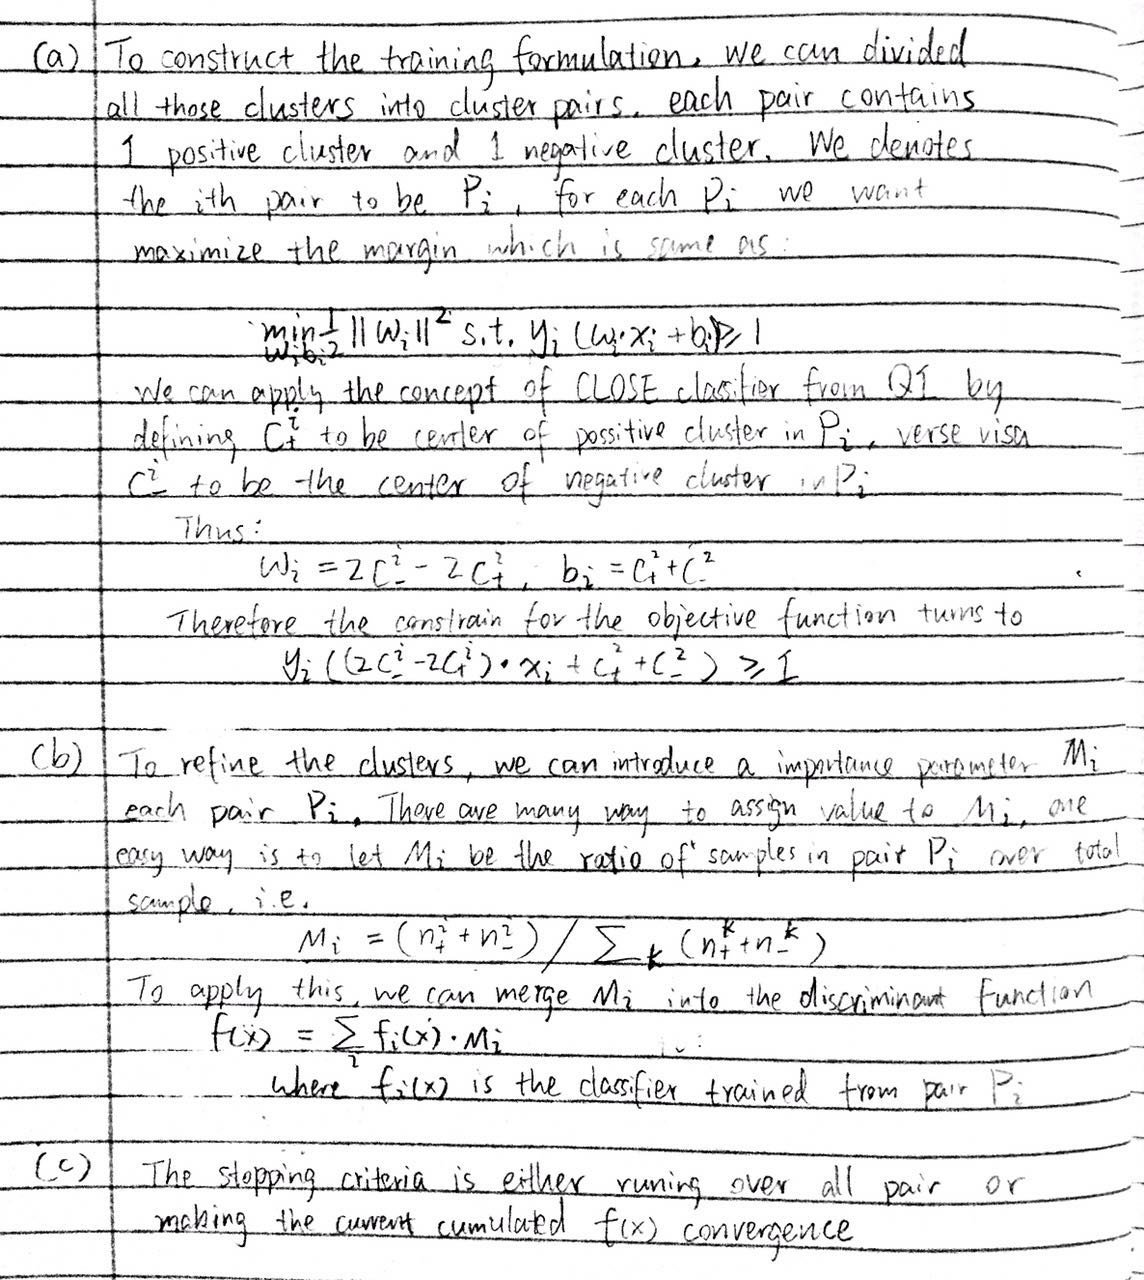 (a) To construct the training formulation, we can divided
all those clusters into cluster pairs, each pair contains
1 positive cluster and 1 negative cluster. We denotes
the ith pair to be Pi, for each Pi we want
maximize the margin which is same as:
min wi,bi 1/2 ||wi||² s.t. yi (wi·xi + bi) ≥ 1
We can apply the concept of CLOSE classifier from Q1 by
defining C₊ⁱ to be center of possitive cluster in Pi, verse visa
C₋ⁱ to be the center of negative cluster in Pi
Thus:
Wi = 2C₋ⁱ - 2C₊ⁱ, bi = C₊² + C₋²
Therefore the constrain for the objective function turns to
yi ((2C₋ⁱ - 2C₊ⁱ)·xi + C₊² + C₋²) ≥ 1
(b) To refine the clusters, we can introduce a importance parameter Mi
each pair Pi. There are many way to assign value to Mi, one
easy way is to let Mi be the ratio of samples in pair Pi over total
sample, i.e.
Mi = (n₊ⁱ + n₋ⁱ) / Σk (n₊ᵏ + n₋ᵏ)
To apply this, we can merge Mi into the discriminant function
f(x) = Σi fi(x)·Mi
where fi(x) is the classifier trained from pair Pi
(c) The stopping criteria is either runing over all pair or
making the current cumulated f(x) convergence